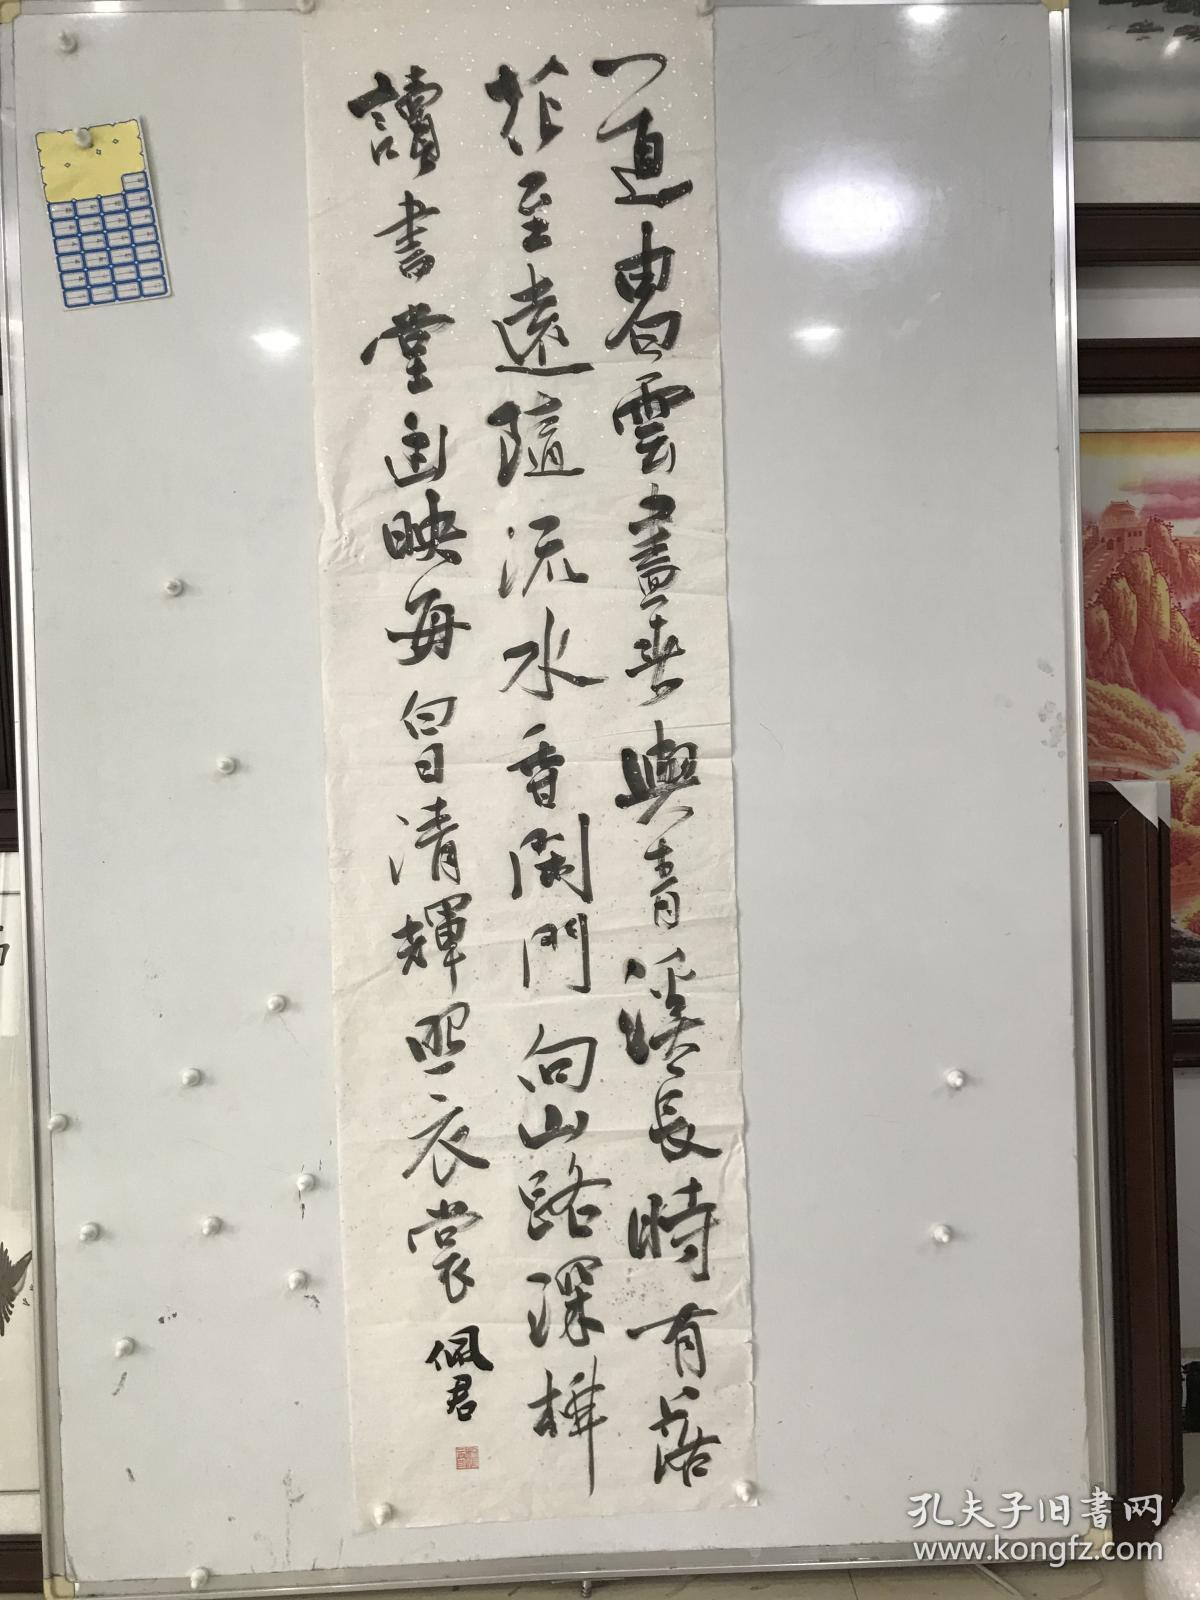 道由白雲盡春與青溪長時有落
花至遠隨流水香閑門向山路深柳
讀書堂幽映每白日清輝照衣裳
佩君
孔夫子旧书网
www.kongfz.com